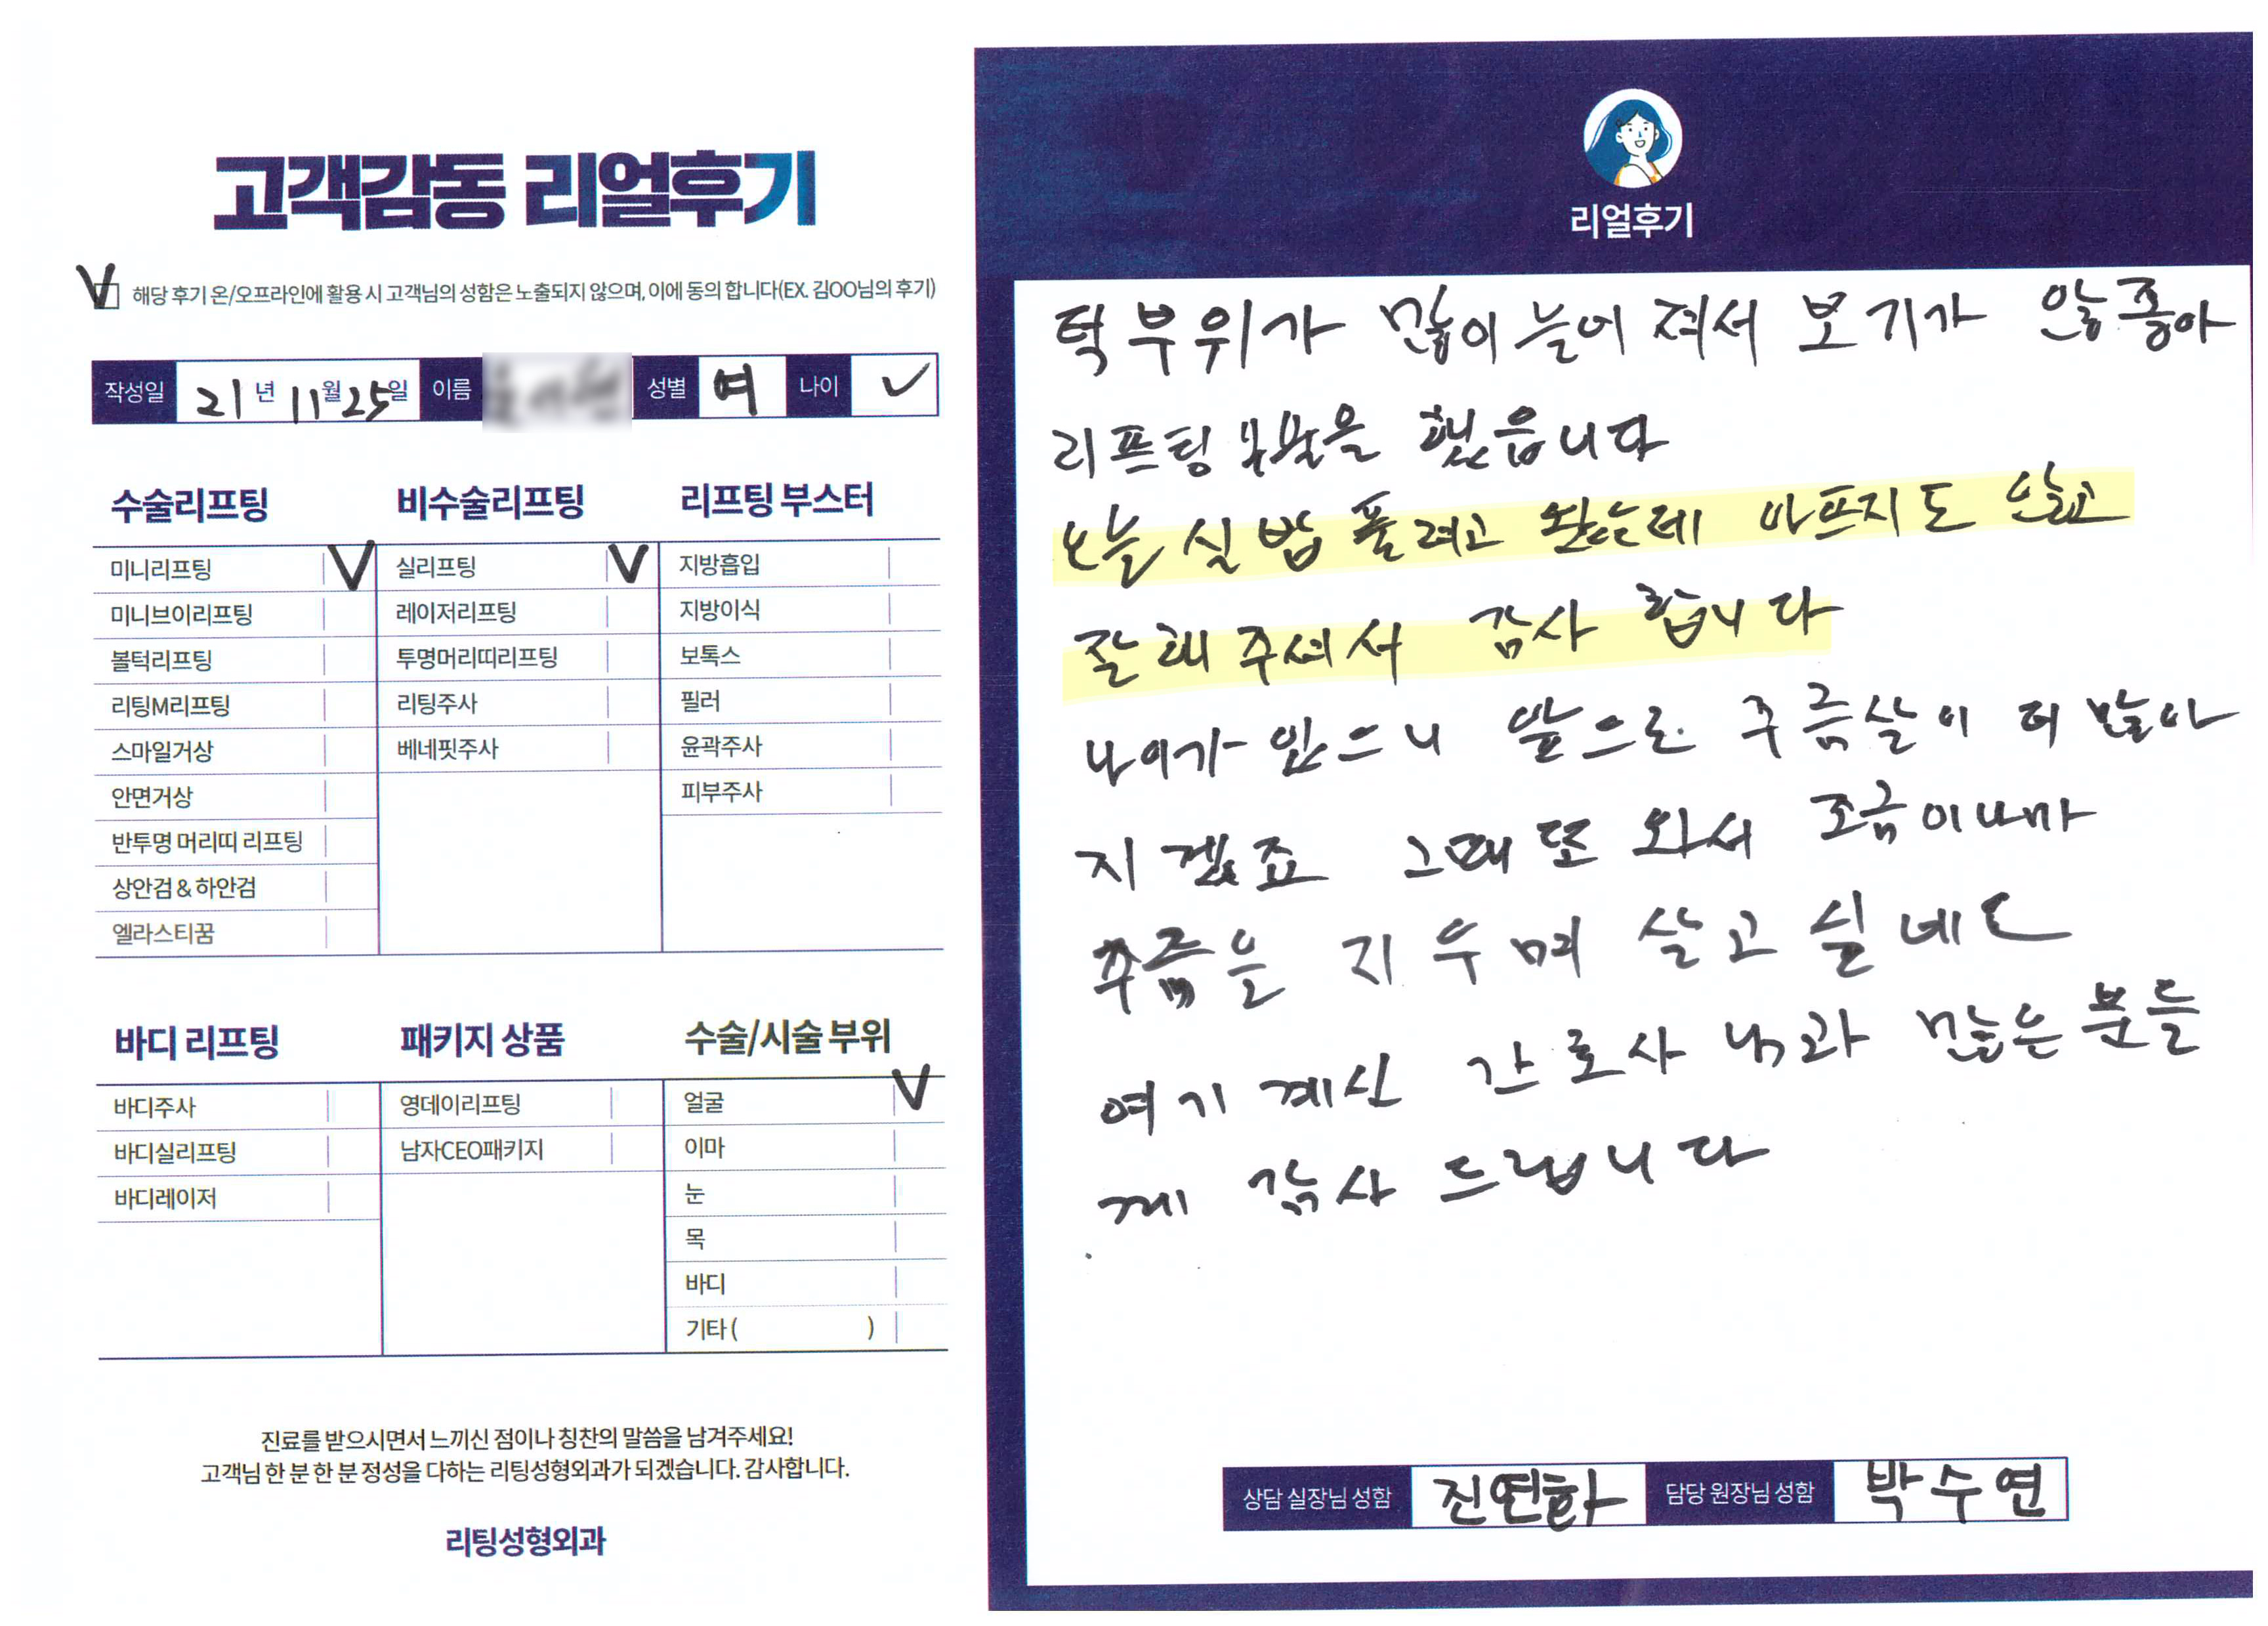 고객감동 리얼후기
V 해당 후기 온/오프라인에 활용 시 고객님의 성함은 노출되지 않으며, 이에 동의 합니다(EX. 김OO님의 후기)
작성일 21년 11월 25일 이름 성별 여 나이 ✓
수술리프팅 비수술리프팅 리프팅 부스터
미니리프팅 V 실리프팅 V 지방흡입
미니브이리프팅 레이저리프팅 지방이식
볼턱리프팅 투명머리띠리프팅 보톡스
리팅M리프팅 리팅주사 필러
스마일거상 베네핏주사 윤곽주사
안면거상 피부주사
반투명 머리띠 리프팅
상안검 & 하안검
엘라스티꿈
바디 리프팅 패키지 상품 수술/시술 부위
바디주사 영데이리프팅 얼굴 V
바디실리프팅 남자CEO패키지 이마
바디레이저 눈
목
바디
기타 ( )
진료를 받으시면서 느끼신 점이나 칭찬의 말씀을 남겨주세요!
고객님 한 분 한 분 정성을 다하는 리팅성형외과가 되겠습니다. 감사합니다.
리팅성형외과
리얼후기
턱부위가 많이 늘어져서 보기가 않좋아
리프팅 했읍니다
오늘 실밥 풀려고 왔는데 아프지도 않고
잘해주셔서 감사 합니다
나이가 있으니 앞으로 주금살이 더 많아
지겠죠 그때 또 와서 조금이나마
주름을 지우며 살고 싶네
여기 계신 간호사님과 많은 분들
께 감사 드립니다
상담 실장님 성함 진연화 담당 원장님 성함 박수연